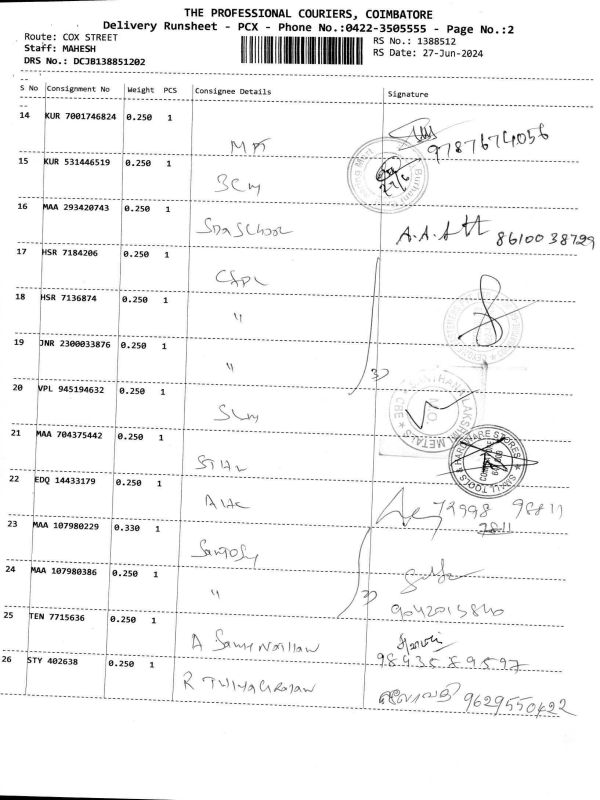 THE PROFESSIONAL COURIERS, COIMBATORE
Delivery Runsheet - PCX - Phone No.:0422-3505555 - Page No.:2
Route: COX STREET
Staff: MAHESH
DRS No.: DCJB138851202
RS No.: 1388512
RS Date: 27-Jun-2024
S No Consignment No Weight PCS Consignee Details Signature
14 KUR 7001746824 0.250 1
9787674056
15 KUR 531446519 0.250 1 BCM
27/6
16 MAA 293420743 0.250 1 SDA School
A.A.A 8610038729
17 HSR 7184206 0.250 1
18 HSR 7136874 0.250 1 "
19 JNR 2300033876 0.250 1 "
20 VPL 945194632 0.250 1 SLM
LAKSHMI METALS CBE
21 MAA 704375442 0.250 1
HARDWARE STORES SMALL TOOLS
22 EDQ 14433179 0.250 1
72998 98811
7811
23 MAA 107980229 0.330 1
24 MAA 107980386 0.250 1 "
9042013840
25 TEN 7715636 0.250 1
9843589597
26 STY 402638 0.250 1 R Thiyagarajan
9629550422